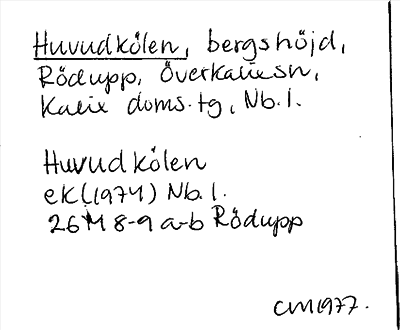 Huvudkölen, bergshöjd,
Rödupp, Överkalixsn,
Kalix doms.tg, Nb.l.
Huvudkölen
ek(1974) Nb.l.
26M 8-9 a-b Rödupp
CM1977.